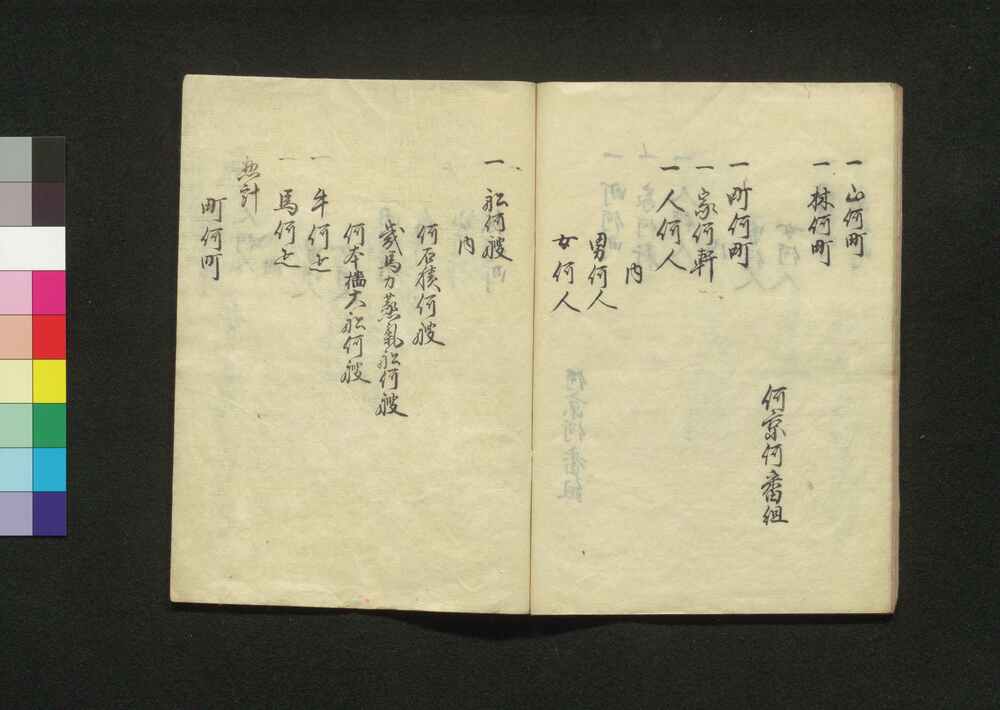 一 山何町
一 林何町
何京何番組
一 町何町
一 家何軒
一 人何人
内
男何人
女何人
一 船何艘
内
何石積何艘
幾馬力蒸気船何艘
何本檣大船何艘
一 牛何疋
一 馬何疋
惣計
町何町